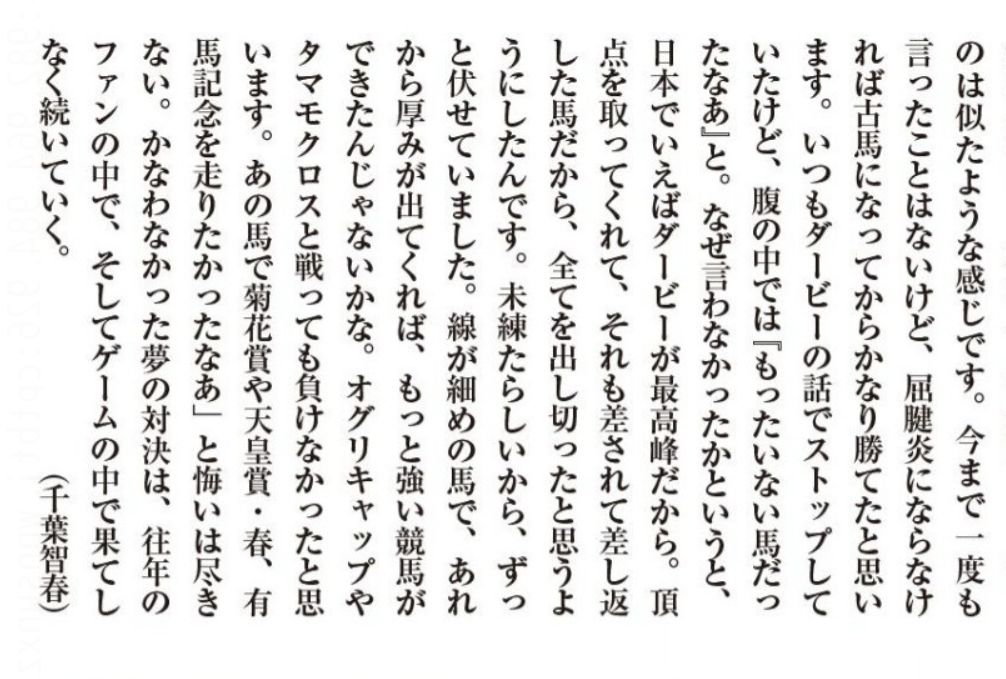 のは似たような感じです。今まで一度も
言ったことはないけど、屈腱炎にならなけ
れば古馬になってからかなり勝てたと思い
ます。いつもダービーの話でストップして
いたけど、腹の中では『もったいない馬だっ
たなあ』と。なぜ言わなかったかというと、
日本でいえばダービーが最高峰だから。頂
点を取ってくれて、それも差されて差し返
した馬だから、全てを出し切ったと思うよ
うにしたんです。未練たらしいから、ずっ
と伏せていました。線が細めの馬で、あれ
から厚みが出てくれば、もっと強い競馬が
できたんじゃないかな。オグリキャップや
タマモクロスと戦っても負けなかったと思
います。あの馬で菊花賞や天皇賞・春、有
馬記念を走りたかったなあ」と悔いは尽き
ない。かなわなかった夢の対決は、往年の
ファンの中で、そしてゲームの中で果てし
なく続いていく。
（千葉智春）